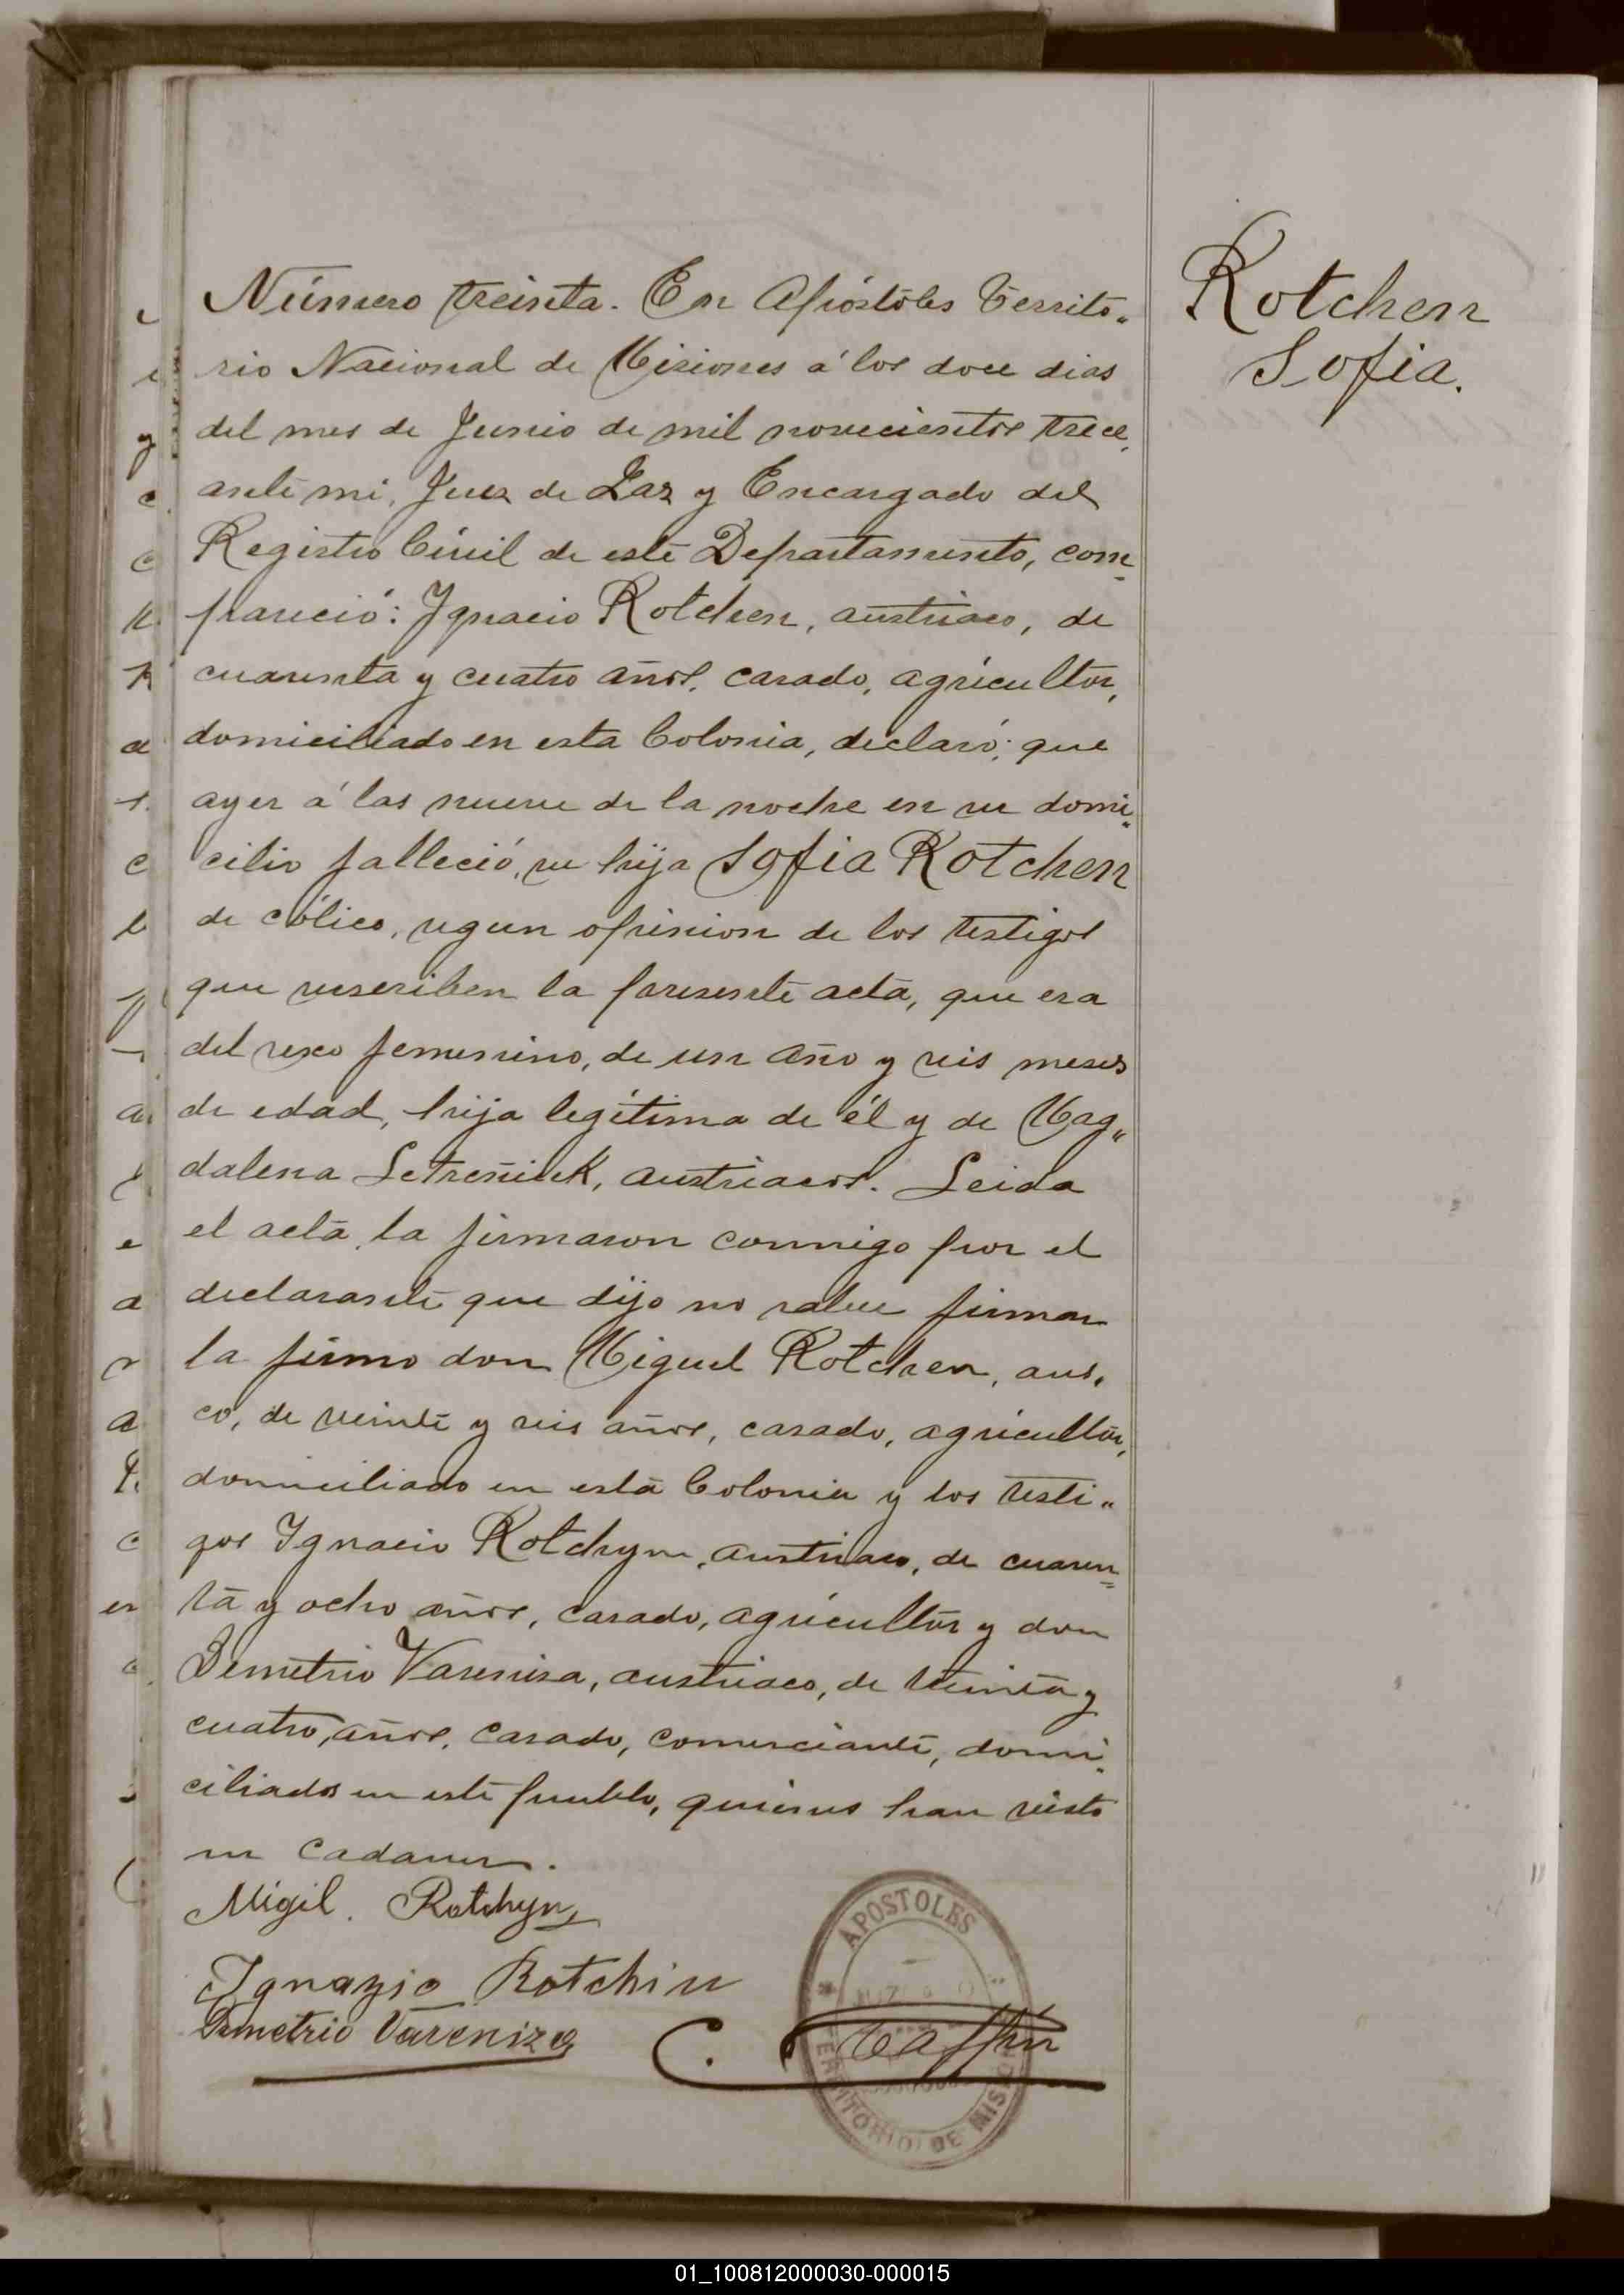 Rotchen
Sofia.
Número treinta. En Apóstoles Territo„
rio Nacional de Misiones á los doce dias
del mes de Junio de mil novecientos trece,
ante mi, Juez de Paz y Encargado del
Registro Civil de este Departamento, com„
pareció: Ignacio Rotchen, austriaco, de
cuarenta y cuatro años, casado, agricultor,
domiciliado en esta Colonia, declaró: que
ayer á las nueve de la noche en su domi„
cilio falleció, su hija Sofia Rotchen
de cólico, segun opinion de los testigos
que suscriben la presente acta, que era
del sexo femenino, de un año y seis meses
de edad, hija legítima de él y de Mag„
dalena Letreñiuk, austriacos. Leida
el acta, la firmaron conmigo por el
declarante que dijo no saber firmar
la firmo don Miguel Rotchen, aus.
co, de veinte y seis años, casado, agricultor,
domiciliado en esta Colonia y los testi„
gos Ignacio Rotchyn, austriaco, de cuaren„
ta y ocho años, casado, agricultor y don
Demetrio Varenisa, austriaco, de treinta y
cuatro, años, casado, comerciante, domi„
ciliados en este pueblo, quienes han visto
su cadaver.
Migil. Rotchyn
Ignazio Rotchin
Dmetrio Vareniza
C.
APOSTOLES
TERRITORIO DE MISIONES
01_100812000030-000015